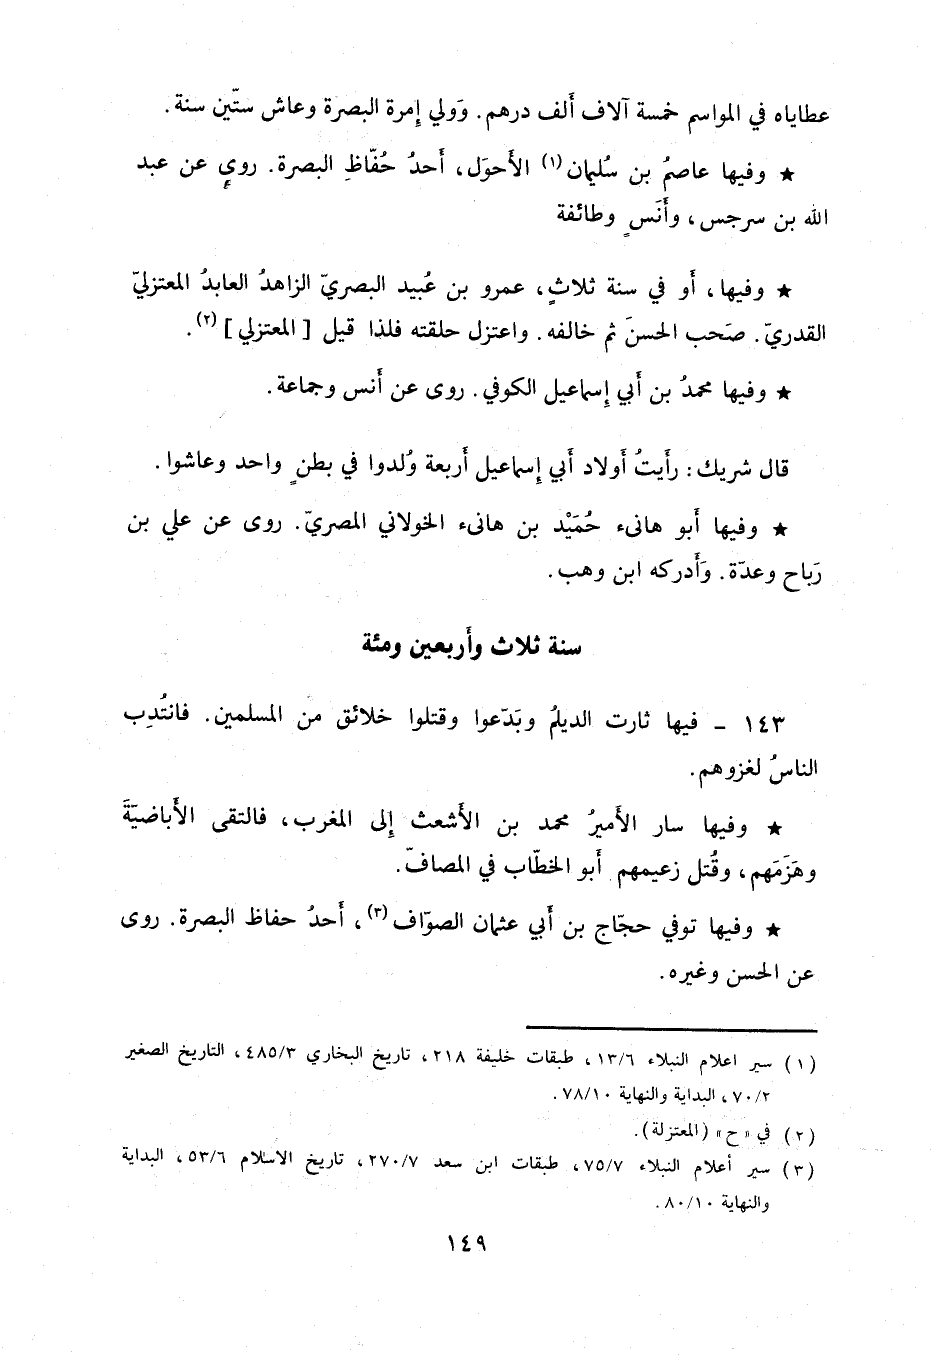 عطاياه في المواسم خمسة آلاف أَلف درهم. وَولي إِمرة البصرة وعاش ستّين سنة.
★ وفيها عاصمُ بن سُليمان (١) الأَحوَل، أَحدُ حُفّاظِ البصرة. روى عن عبد
الله بن سرجس، وأَنَسٍ وطائفة
★ وفيها، أَو في سنة ثلاثٍ، عمرو بن عُبيد البصريّ الزاهدُ العابدُ المعتزليّ
القدريّ. صَحب الحسنَ ثم خالفه. واعتزل حلقته فلذا قيل [ المعتزلي ] (٢).
★ وفيها محمدُ بن أَبي إِسماعيل الكوفي. روى عن أَنس وجماعة.
قال شريك: رأَيتُ أَولاد أَبي إِسماعيل أَربعة وُلدوا في بطنٍ واحد وعاشوا.
★ وفيها أَبو هانىء حُمَيْد بن هانىء الخولاني المصريّ. روى عن علي بن
رَباح وعدّة. وَأَدركه ابن وهب.
سنة ثلاث وأَربعين ومئة
١٤٣ – فيها ثارت الديلمُ وبَدّعوا وقتلوا خلائق من المسلمين. فانتُدِب
الناسُ لغزوهم.
★ وفيها سار الأَميرُ محمد بن الأَشعث إِلى المغرب، فالتقى الأَباضيّةَ
وهَزَمَهم، وقُتل زعيمهم أَبو الخطّاب في المصافّ.
★ وفيها توفي حجّاج بن أَبي عثمان الصوّاف (٣)، أَحدُ حفاظ البصرة. روى
عن الحسن وغيره.
(١) سير اعلام النبلاء ١٣/٦، طبقات خليفة ٢١٨، تاريخ البخاري ٤٨٥/٣، التاريخ الصغير
٧٠/٢، البداية والنهاية ٧٨/١٠.
(٢) في « ح » (المعتزلة).
(٣) سير أعلام النبلاء ٧٥/٧، طبقات ابن سعد ٢٧٠/٧، تاريخ الاسلام ٥٣/٦، البداية
والنهاية ٨٠/١٠.
١٤٩